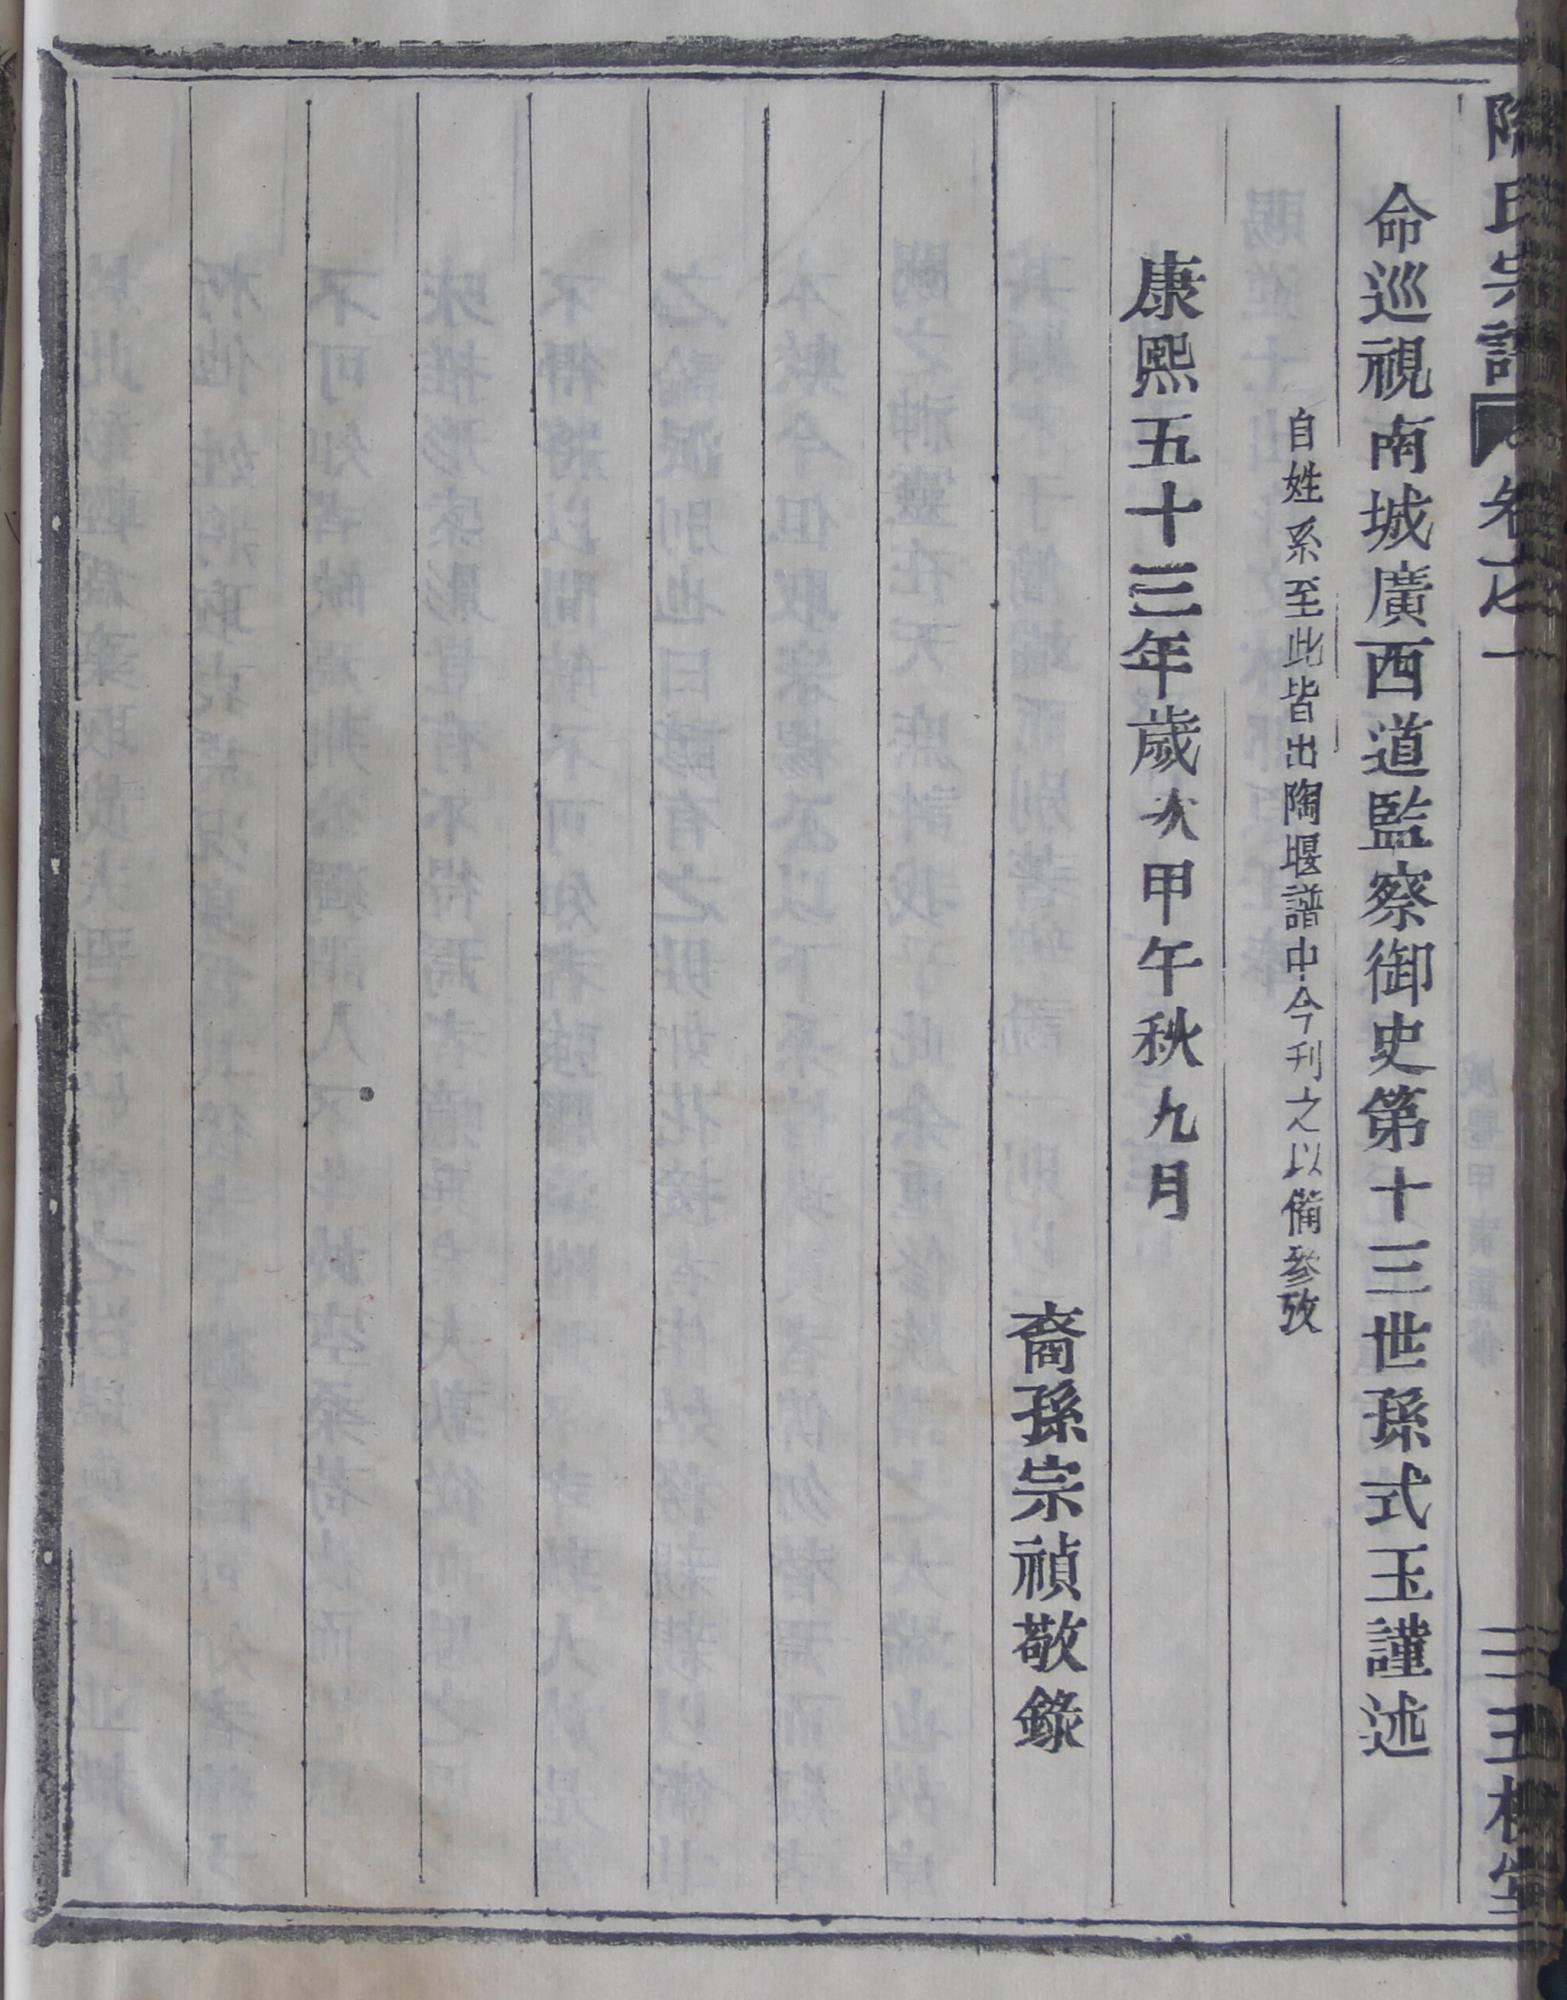 陶氏宗譜 卷之一
命巡視南城廣西道監察御史第十三世孫式玉謹述
自姓系至此皆出陶堰譜中今刊之以備參攷
康熙五十三年歲次甲午秋九月
裔孫宗禎敬錄